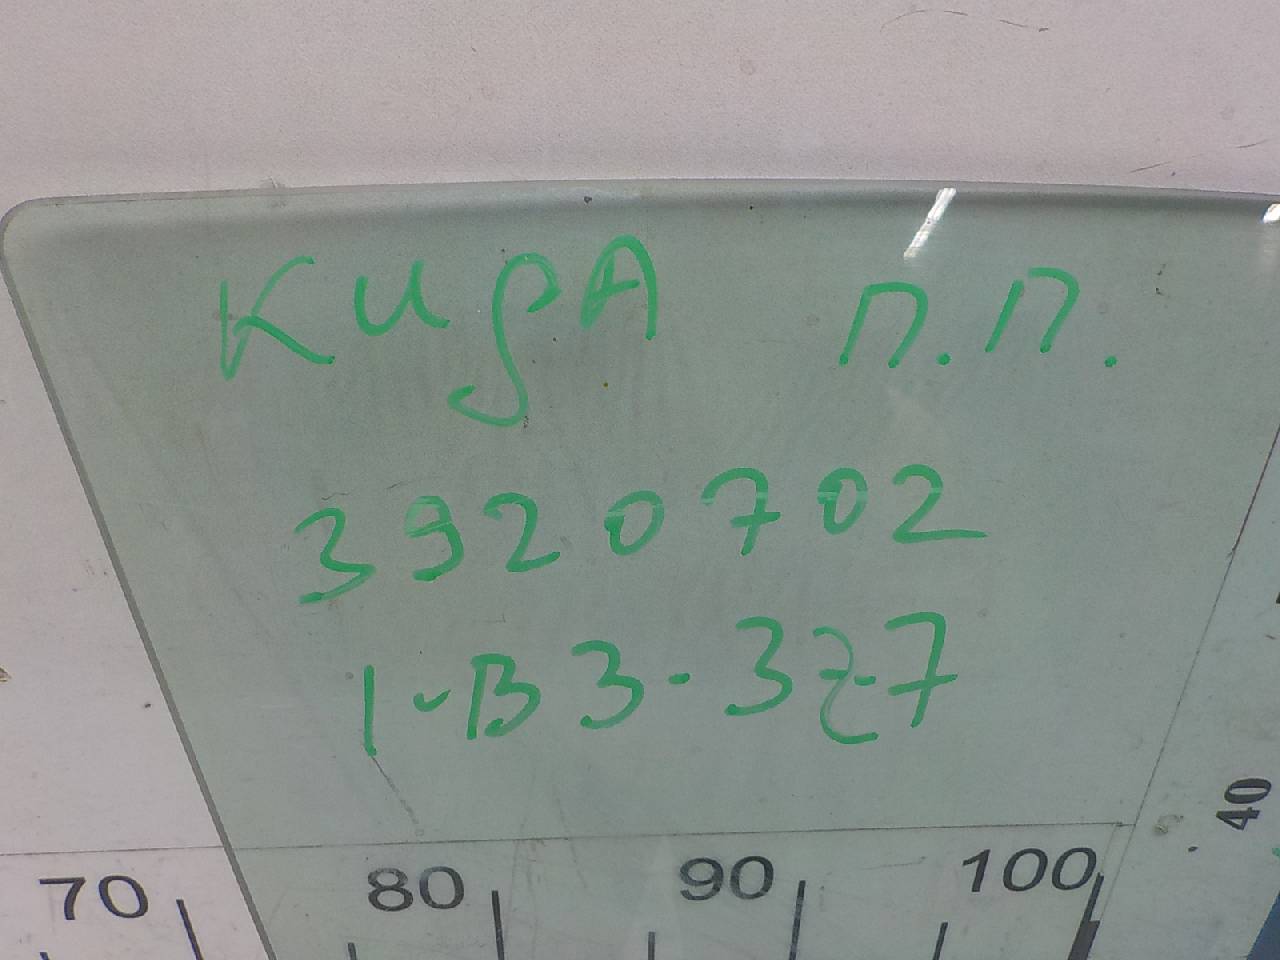 КИДА П.П.
3920702
1-В3-327
40
70 80 90 100